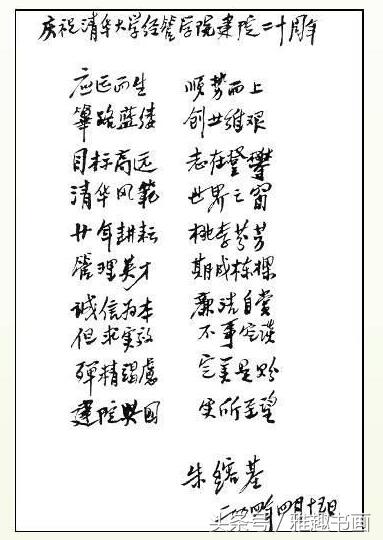 庆祝清华大学经管学院建院二十周年
应运而生 顺势而上
筚路蓝缕 创业维艰
目标高远 志在登攀
清华风范 世界之窗
廿年耕耘 桃李芬芳
管理英才 期成栋梁
诚信为本 廉洁自赏
但求实效 不事空谈
殚精竭虑 完美是盼
建院兴国 实所至望
朱镕基
二〇〇四年四月十五日
头条号/雅趣书画